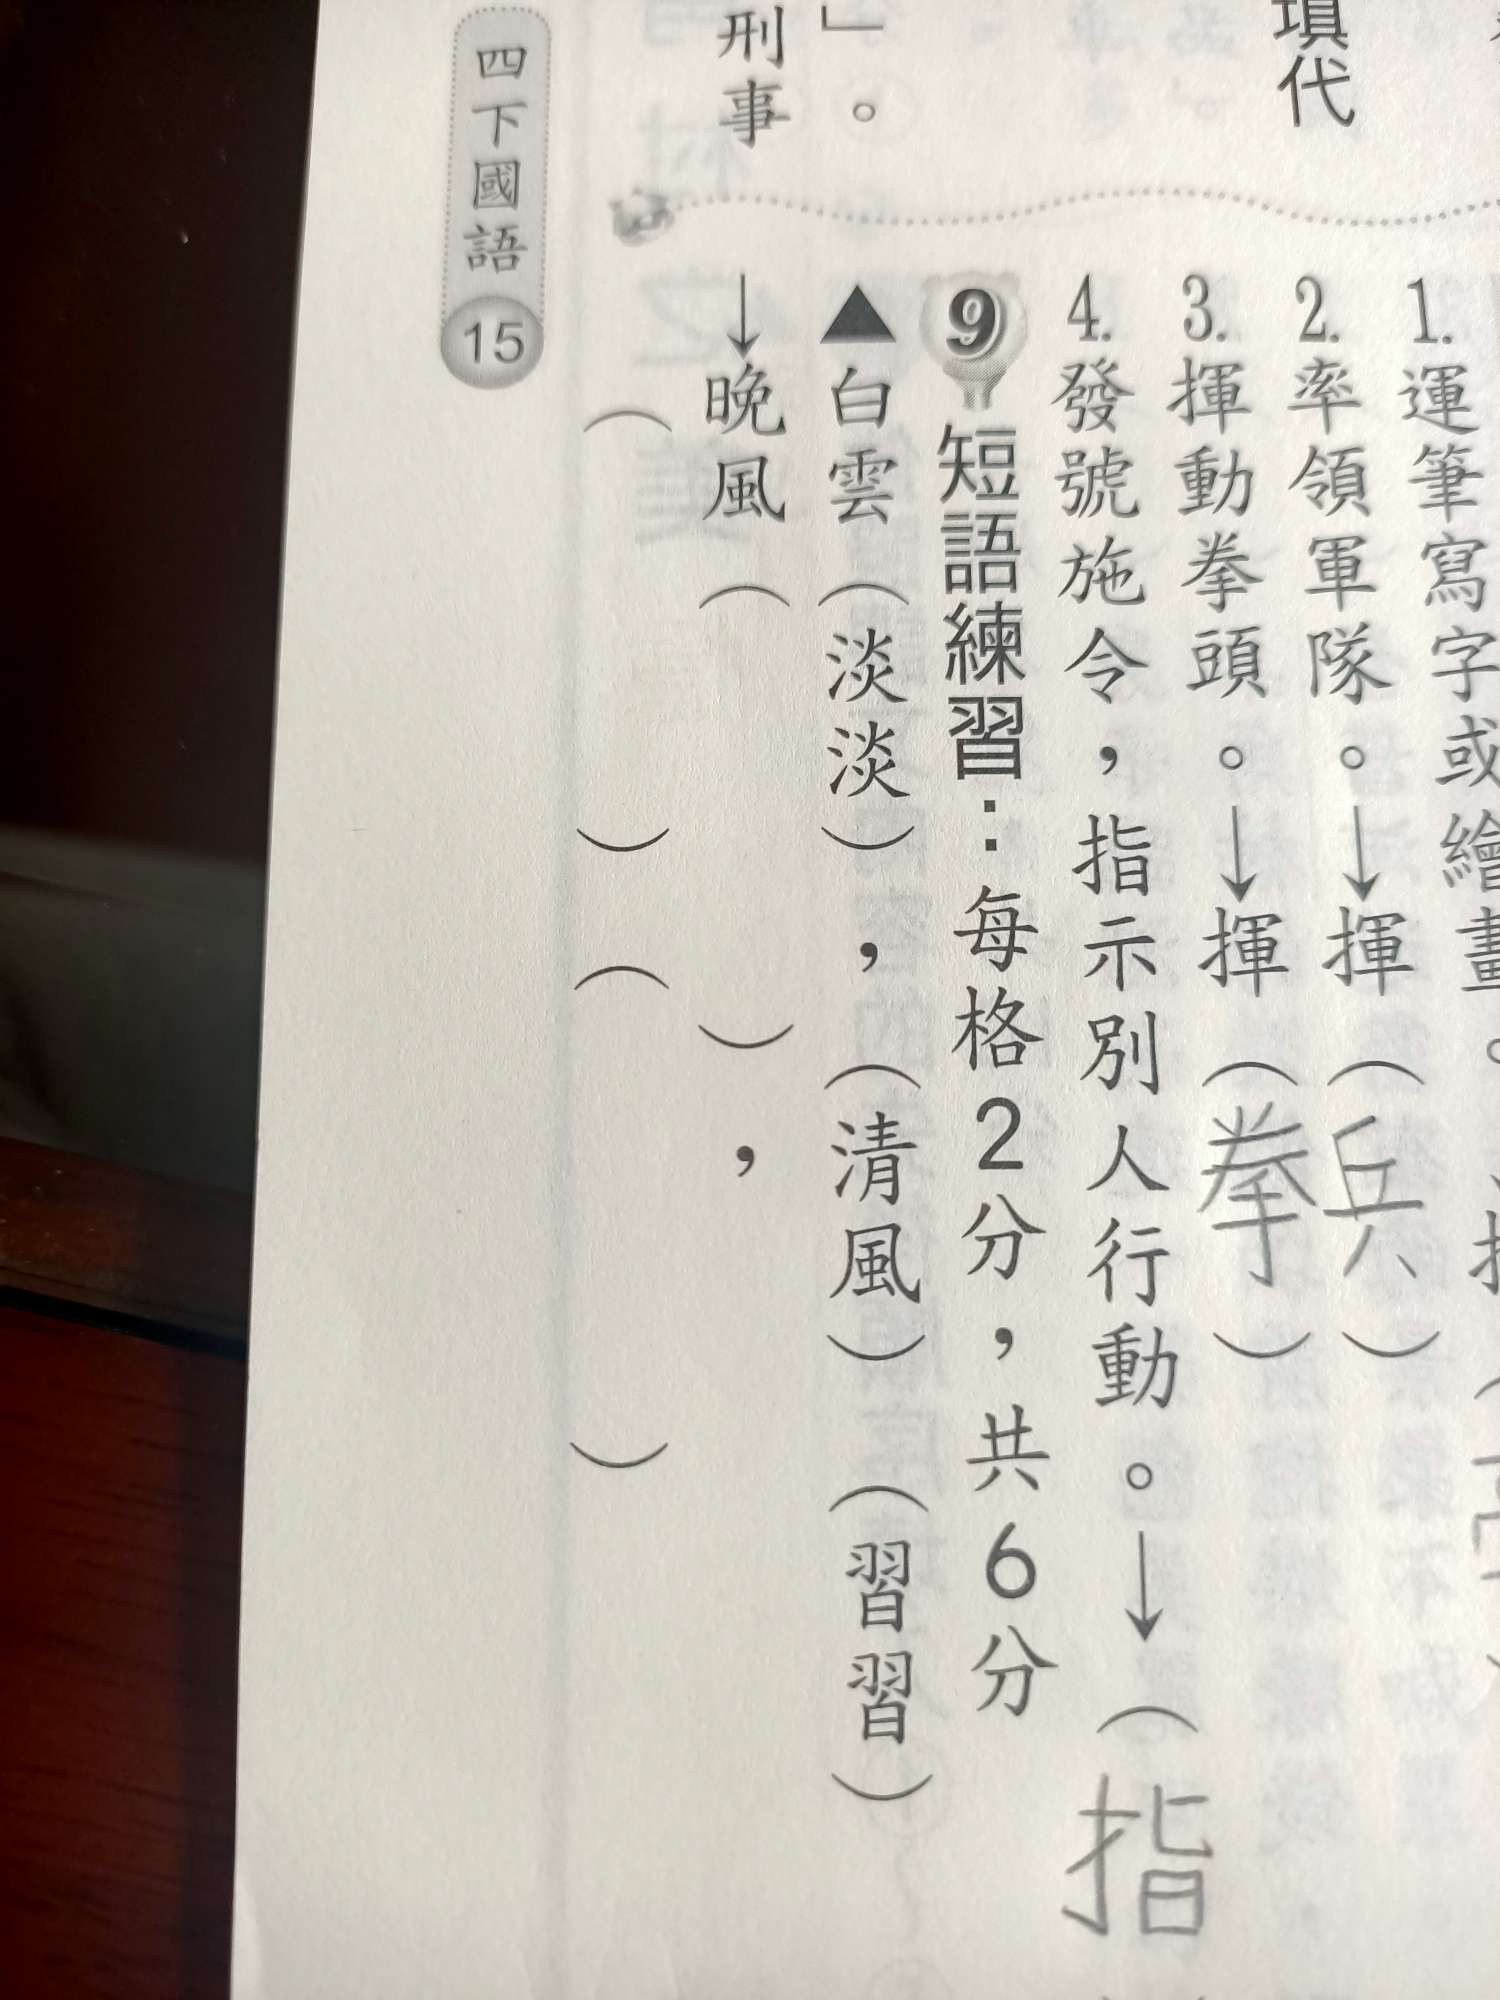 填代
」。
刑事
1. 運筆寫字或繪畫。
2. 率領軍隊。→揮（兵）
3. 揮動拳頭。→揮（拳）
4. 發號施令，指示別人行動。→（指
9 短語練習：每格2分，共6分
▲白雲（淡淡），（清風）（習習）
→晚風（　　），
（　　）（　　）
四下國語 15